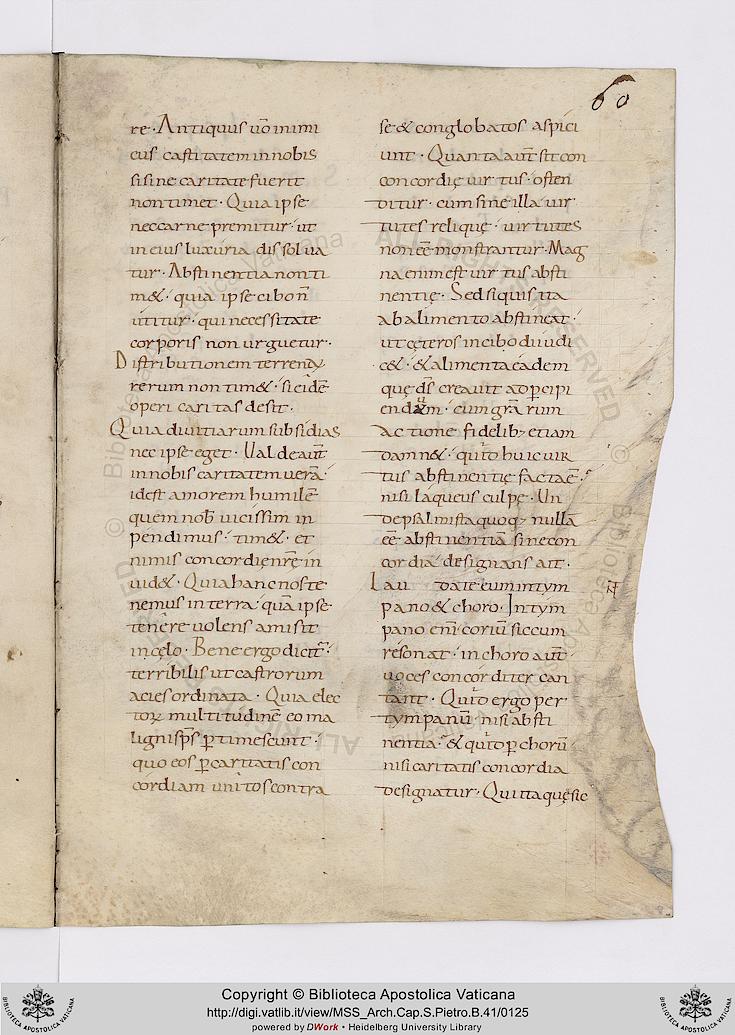 60
re · Antiquus uo᷒ inimi
cus castitatem in nobis
si sine caritate fuerit
non timet · Quia ipse
nec carne premitur · ut
in eius luxuria dissolua
tur · Abstinentia non ti
m& · quia ipse cibo non̄
utitur · qui necessitate
corporis non urguetur ·
Distributionem terrenaꝝ
rerum non tim& · si eidē
operi caritas desit ·
Quia diuitiarum subsidias
nec ipse eget · Ualde aut̄
in nobis caritatem uerā ·
id est amorem humilē
quem nob̄ uicissim in
pendimus · tim& · et
nimis concordie nr̄e in
uid& · Quia hanc noste
nemus in terra · quā ipse
tenere nolens amisit
in cęlo · Bene ergo dicit̄ ·
terribilis ut castrorum
acies ordinata · Quia elec
toꝝ multitudinē eo ma
ligni sp̄s ꝑtimescunt ·
quo eos ꝑ caritatis con
cordiam unitos contra
se & conglobatos aspici
unt · Quanta aut̄ sit con
concordię uirtus · osten
ditur · cum sine illa uir
tutes reliquę · uirtutes
non eē monstrantur · Mag
na enim est uirtus absti
nentię · Sed si quis ita
ab alimento abstineat ·
ut cęteros in cibo diiudi
c& · & alimenta eadem
quę ds̄ creauit ad ꝑcipi
endum · cum gr̄arum
actione fidelibꝫ etiam
damn& · quid huic uir
tus abstinentię facta ē ·
nisi laqueus culpę · Un
de psalmista quoqꝫ nullā
eē abstinentiā sine con
cordia designans ait ·
Laudate eum in tym
pano & choro · In tym
pano enī coriū siccum
resonat · in choro aut̄
uoces concorditer can
tant · Quid ergo per
tympanū nisi absti
nentia · & quid ꝑ chorū
nisi caritatis concordia
designatur · Qui itaque sic
Copyright © Biblioteca Apostolica Vaticana
http://digi.vatlib.it/view/MSS_Arch.Cap.S.Pietro.B.41/0125
powered by DWork • Heidelberg University Library